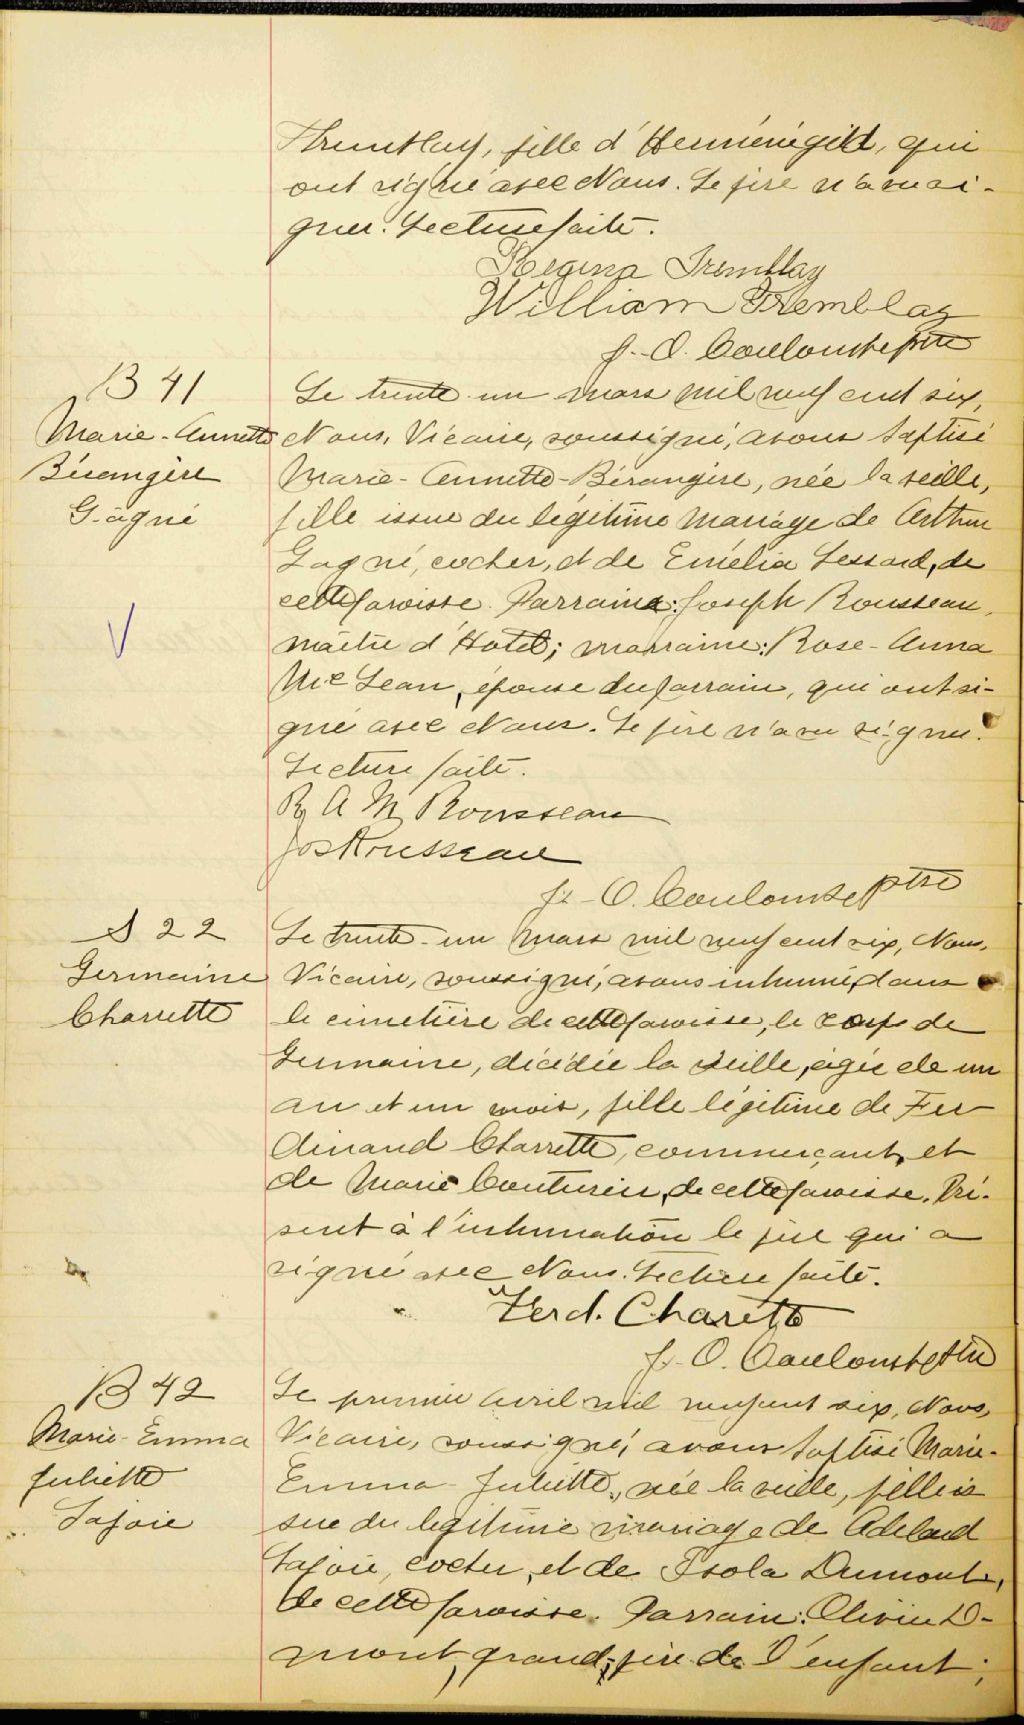 Tremblay, fille d'Herménégild, qui
ont signé avec Nous. Le père n'a su si-
gner. Lecture faite.
Regina Tremblay
William Tremblay
J.-O. Coulombe ptre
B 41
Marie-Annette
Bérangère
Gagné
Le trente-un mars mil neuf cent six,
Nous, Vicaire, soussigné, avons baptisé
Marie-Annette-Bérangère, née la veille,
fille issue du légitime mariage de Arthur
Gagné, cocher, et de Emélia Lessard, de
cette paroisse. Parrain: Joseph Rousseau,
maître d'Hotel; marraine: Rose-Anna
McLean, épouse du parrain, qui ont si-
gné avec Nous. Le père n'a su signer.
Lecture faite.
R A M Rousseau
Jos Rousseau
J.-O. Coulombe ptre
S 22
Germaine
Charrette
Le trente-un mars mil neuf cent six, Nous,
Vicaire, soussigné, avons inhumé dans
le cimetière de cette paroisse, le corps de
Germaine, décédée la veille, âgée de un
an et un mois, fille légitime de Fer-
dinand Charrette, commerçant, et
de Marie Couturier, de cette paroisse. Pré-
sent à l'inhumation le père qui a
signé avec Nous. Lecture faite.
Ferd. Charette
J.-O. Coulombe ptre
B 42
Marie-Emma
Juliette
Lajoie
Le premier avril mil neuf cent six, Nous,
Vicaire, soussigné, avons baptisé Marie-
Emma-Juliette, née la veille, fille is
sue du légitime mariage de Adelard
Lajoie, cocher, et de Isola Dumont,
de cette paroisse. Parrain: Olivier D-
mont, grand-père de l'enfant;